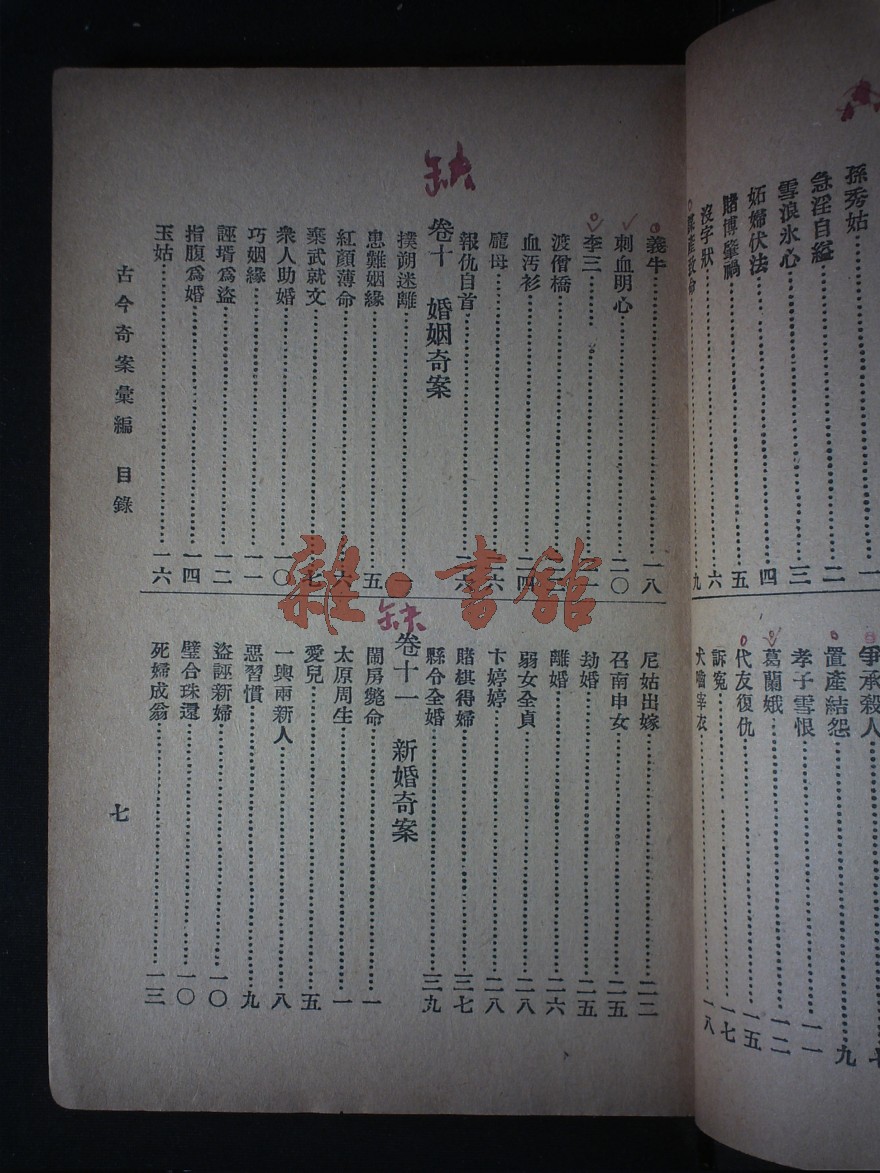 孫秀姑……一
急淫自縊……二
雪浪氷心……三
妬婦伏法……四
賭博肇禍……五
沒字狀……六
致命……九
爭承殺人……七
置產結怨……九
孝子雪恨……一一
葛蘭娥……一二
代友復仇……一五
訴冤……一七
一八
義牛……一八
刺血明心……二〇
李三……
渡僧橋……
血汚衫……二四
龐母……
報仇自首……
缺
卷十 婚姻奇案
撲朔迷離……一
患難姻緣……五
紅顏薄命……六
棄武就文……七
衆人助婚……一〇
巧姻緣……一一
誣壻爲盜……一二
指腹爲婚……一四
玉姑……一六
尼姑出嫁……二二
召南申女……二五
劫婚……二五
離婚……二六
弱女全貞……二八
卞婷婷……二八
賭棋得婦……三七
縣令全婚……三九
缺
卷十一 新婚奇案
鬧房斃命……一
太原周生……一
愛兒……五
一輿兩新人……八
惡習慣……九
盜誣新婦……一〇
璧合珠還……一〇
死婦成翁……一三
古今奇案彙編 目錄
七
雜·書館